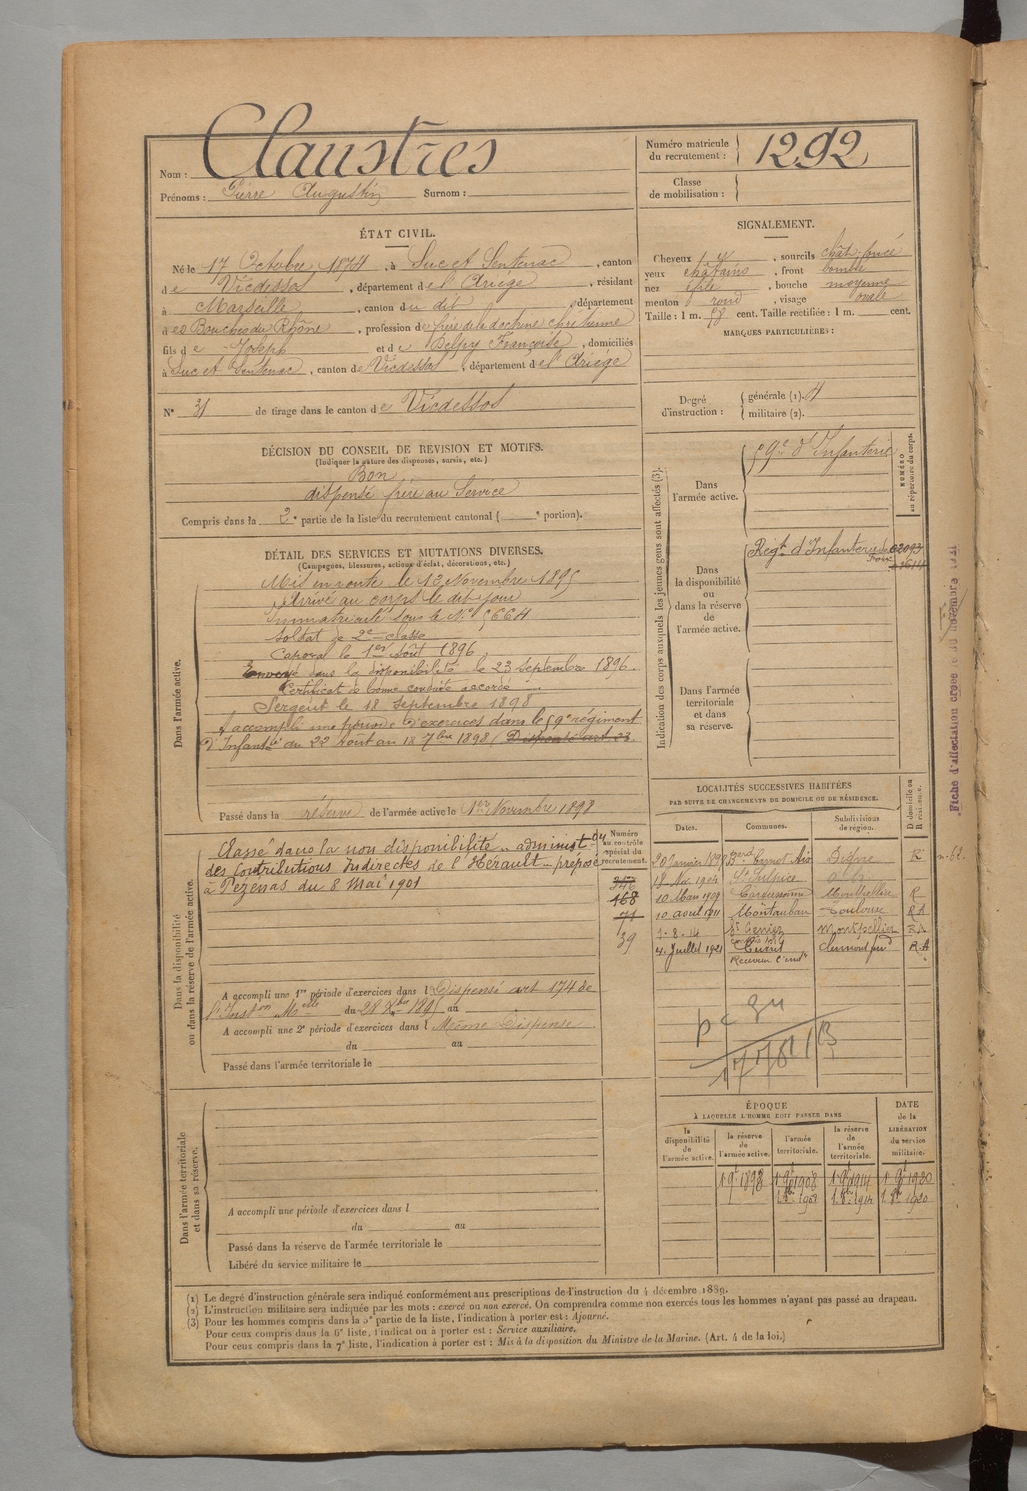 Nom : Claustres
Prénoms : Pierre Augustin Surnom :
Numéro matricule du recrutement : 1292
Classe de mobilisation :
ÉTAT CIVIL.
Né le 17 Octobre 1874, à Suc et Sentenac, canton
de Vicdessos, département de l'Ariège, résidant
à Marseille, canton du dit, département
des Bouches du Rhône, profession de frère de la doctrine chrétienne
fils de Joseph et de Delpy Françoise, domiciliés
à Suc et Sentenac, canton de Vicdessos, département de l'Ariège
N° 31 de tirage dans le canton de Vicdessos
SIGNALEMENT.
Cheveux, sourcils chât. foncé
yeux châtains, front bombé
nez effilé, bouche moyenne
menton rond, visage ovale
Taille : 1 m. cent. Taille rectifiée : 1 m. cent.
MARQUES PARTICULIÈRES :
Degré d'instruction : générale (1). 4
militaire (2).
DÉCISION DU CONSEIL DE REVISION ET MOTIFS.
(Indiquer la nature des dispenses, sursis, etc.)
Bon
dispensé frère au Service
Compris dans la 2e partie de la liste du recrutement cantonal ( e portion).
DÉTAIL DES SERVICES ET MUTATIONS DIVERSES.
(Campagnes, blessures, actions d'éclat, décorations, etc.)
Dans l'armée active.
Mis en route le 13 Novembre 1895
Arrivé au corps le dit jour
Immatriculé sous le N° 5664
Soldat de 2e classe
Caporal le 1er Août 1896
Envoyé dans la disponibilité le 23 Septembre 1896.
Certificat de bonne conduite accordé
Sergent le 18 Septembre 1898
A accompli une période d'exercices dans le 59e régiment
d'Infanterie du 22 Août au 18 7bre 1898 (Dispensé art 23.
Passé dans la réserve de l'armée active le 1er Novembre 1898
Indication des corps auxquels les jeunes gens sont affectés (3).
NUMÉRO au répertoire du corps.
Dans l'armée active.
59e d'Infanterie
Dans la disponibilité ou dans la réserve de l'armée active.
Régt d'Infanterie de Foix
02093
Dans l'armée territoriale et dans sa réserve.
Fiche d'affectation créée le 30 novembre 1921
Dans la disponibilité ou dans la réserve de l'armée active.
Classé dans la non disponibilité administ.on
des Contributions Indirectes de l'Hérault préposé
à Pézenas du 8 Mai 1901
Numéro au contrôle spécial du recrutement.
346
168
71
39
A accompli une 1re période d'exercices dans l Dispensé art 174 de
l'Inston Melle du 28 Xbre 1895 au
A accompli une 2e période d'exercices dans l Même Dispense
du au
Passé dans l'armée territoriale le
LOCALITÉS SUCCESSIVES HABITÉES
PAR SUITE DE CHANGEMENTS DE DOMICILE OU DE RÉSIDENCE.
Dates. Communes. Subdivisions de région. D domicile ou R résidence.
20 Janvier Aix Digne R
18 Nov. 1904 St Sulpice
10 Mars 1909 Carcassonne Montpellier R
10 août 1911 Montauban Toulouse RA
7-8-14 Montpellier RA
4 Juillet 1921 Clermont Fd R.A
17781
Dans l'armée territoriale et dans sa réserve.
A accompli une période d'exercices dans l
du au
Passé dans la réserve de l'armée territoriale le
Libéré du service militaire le
ÉPOQUE
À LAQUELLE L'HOMME DOIT PASSER DANS
la disponibilité de l'armée active. la réserve de l'armée active. l'armée territoriale. la réserve de l'armée territoriale.
DATE de la LIBÉRATION du service militaire.
1 9t 1898 1 9t 1908 1 9t 1914 1 9t 1920
1.8bre 1908 1.8bre 1914 1.8bre 1920
(1) Le degré d'instruction générale sera indiqué conformément aux prescriptions de l'instruction du 4 décembre 1889.
(2) L'instruction militaire sera indiquée par les mots : exercé ou non exercé. On comprendra comme non exercés tous les hommes n'ayant pas passé au drapeau.
(3) Pour les hommes compris dans la 5e partie de la liste, l'indication à porter est : Ajourné.
Pour ceux compris dans la 6e liste, l'indication à porter est : Service auxiliaire.
Pour ceux compris dans la 7e liste, l'indication à porter est : Mis à la disposition du Ministre de la Marine. (Art. 4 de la loi.)